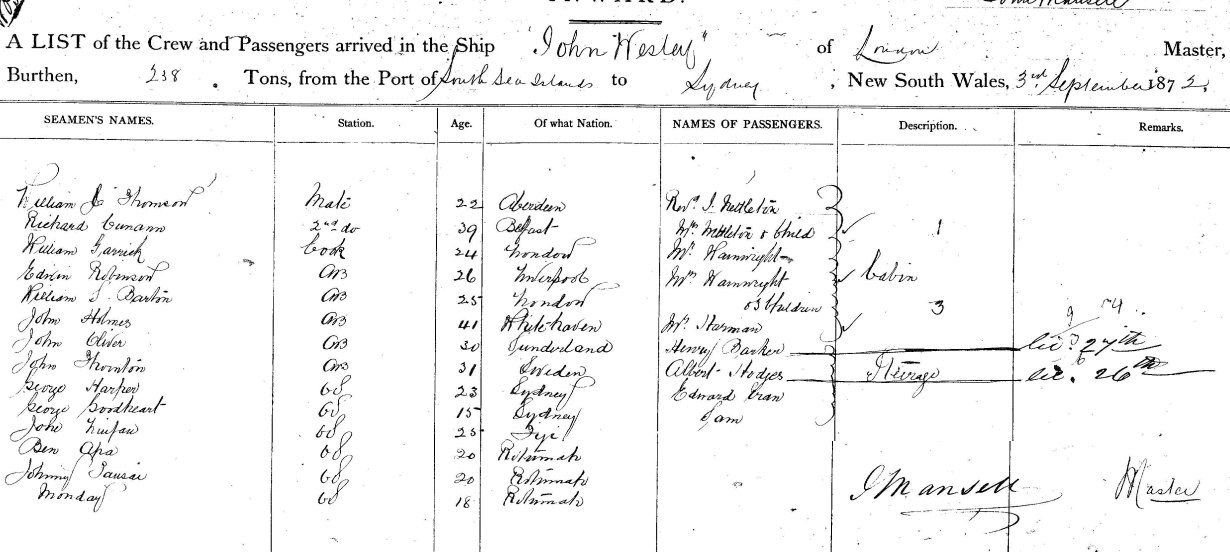 A LIST of the Crew and Passengers arrived in the Ship "John Wesley" of London Master,
Burthen, 238 Tons, from the Port of South Sea Islands to Sydney, New South Wales, 3rd September 1872.
SEAMEN'S NAMES. Station. Age. Of what Nation. NAMES OF PASSENGERS. Description. Remarks.
William J Thomson Mate 22 Aberdeen Revd. J. Nettleton
Richard 2nd do 39 Belfast Mrs Nettleton & Child 1
William Garrick Cook 24 London Mr. Wainwright
Edwin Robinson AB 26 Liverpool Mrs Wainwright Cabin
William S. Barton AB 25 London & 3 Children 3
John Holmes AB 41 Whitehaven Mr. Harman
John Oliver AB 30 Sunderland Henry Barker 27th
John Thornton AB 31 Sweden Albert Hodges Steerage 26th
George Harper OS 23 Sydney Edward
George Goodheart OS 15 Sydney Sam
John OS 25 Fiji
Ben Apa OS 20 Rotumah
Johnny OS 20 Rotumah
Monday OS 18 Rotumah
J Mansell Master